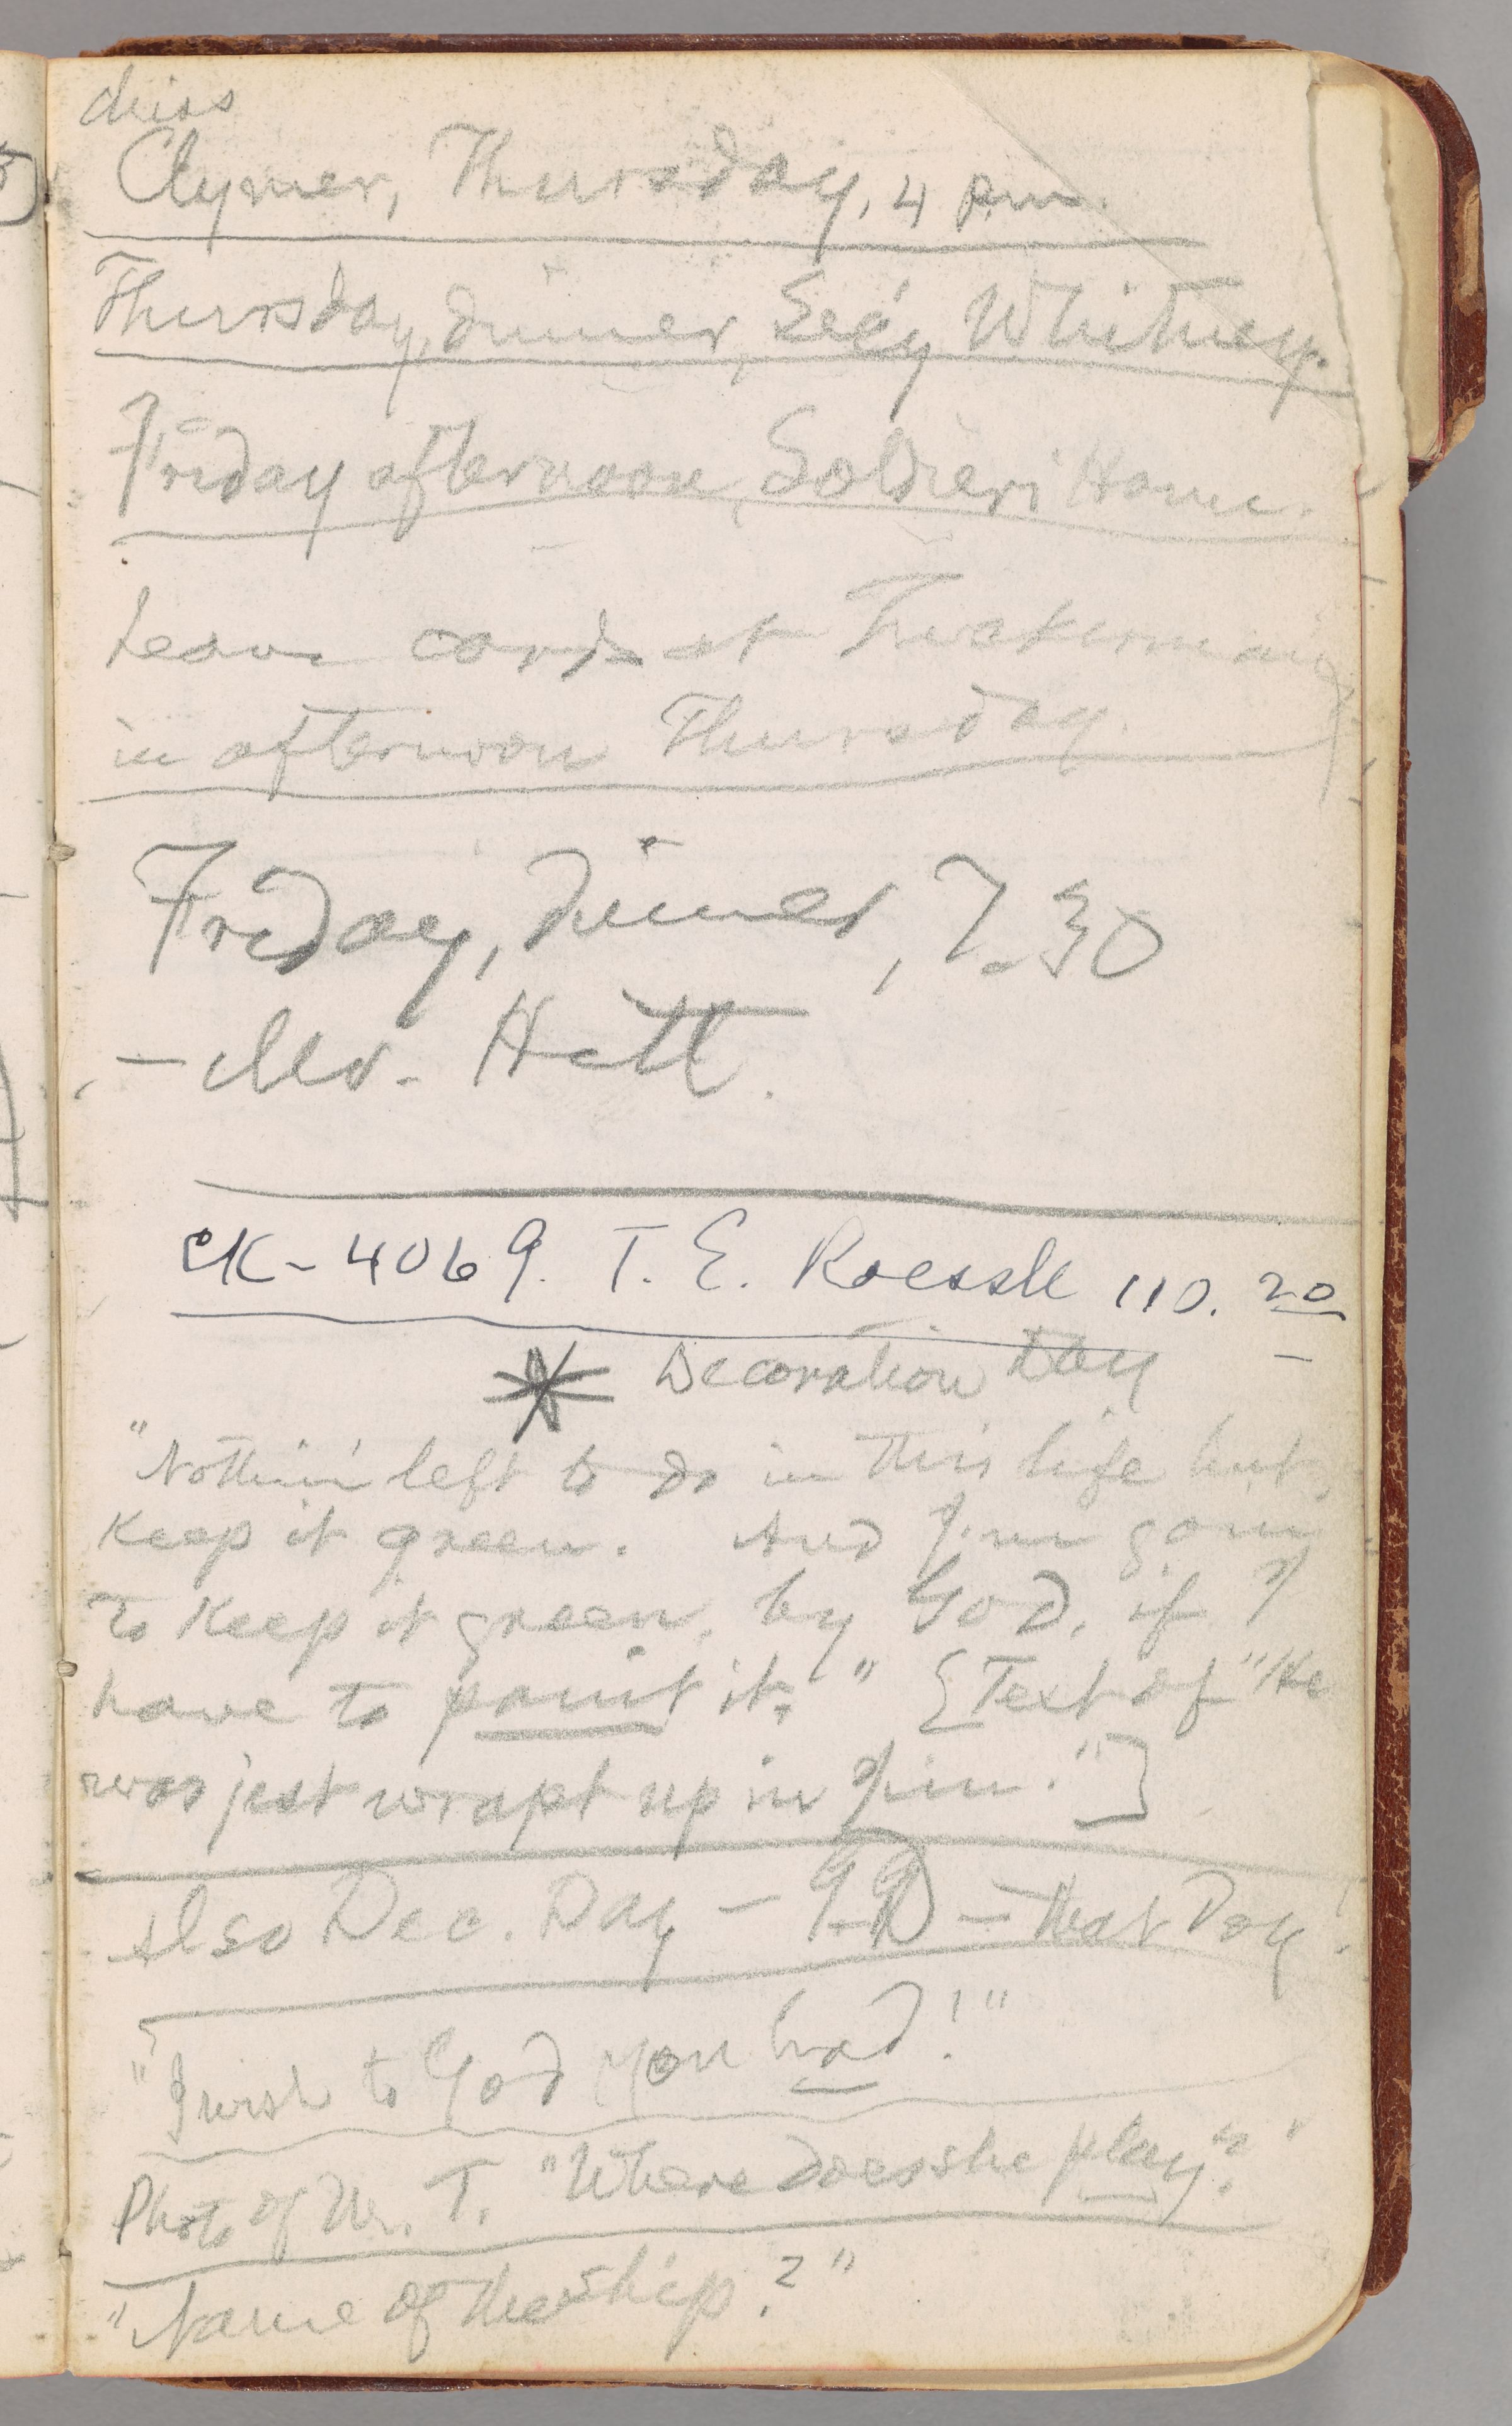 Miss
Clymer, Thursday, 4 p.m.
Thursday, dinner, Sec'y Whitney.
Friday afternoon, Soldiers' Home.
Leave cards at
in afternoon Thursday.
Friday, dinner, 7.30
— Mr. Hitt.
CK - 4069. T. E. Roessle 110. 20
* Decoration Day
"Nothin' left to do in this life but
keep it green. And I'm going
to keep it green, by God, if I
have to paint it." [Text of "He
was jest wrapt up in him."]
Also Dec. Day — — that Day!
"I wish to God you had!"
Photo of W. T. "Where does she play?"
"Name of the ship?"